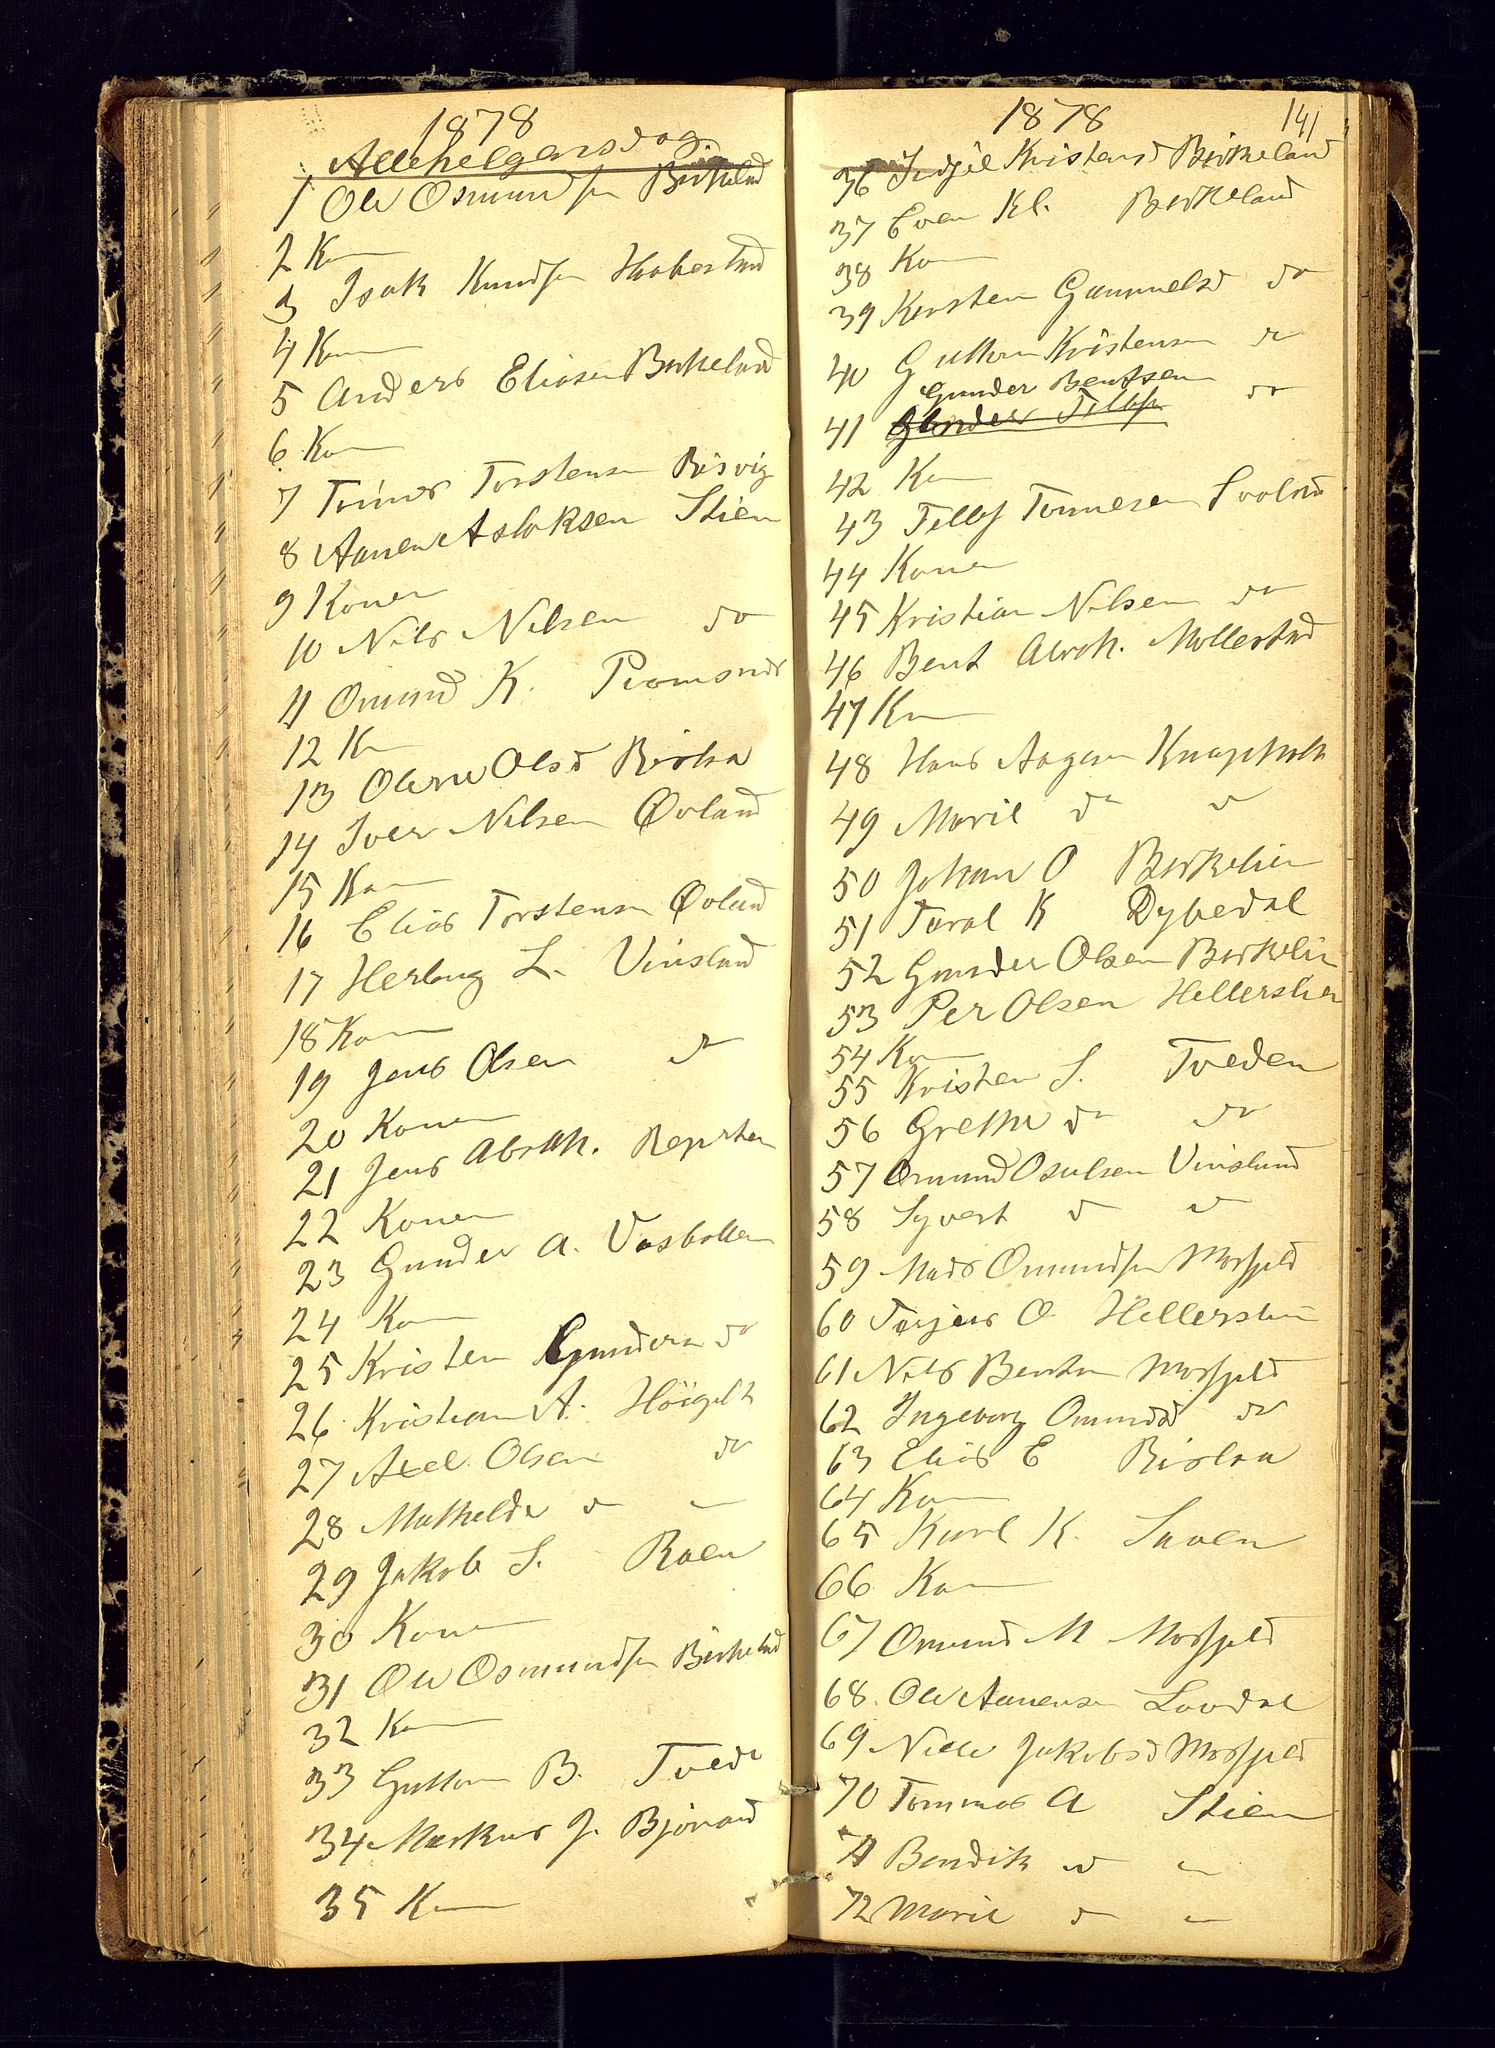 1878
Allehelgensdag
1 Ole Osmundsen Birkeland
2 Kon
3 Isak Knudsen Haabestad
4 Kon
5 Anders Eliasen Birkeland
6 Kon
7 Torstensen Risvig
8 Aanen Aslaksen Stien
9 Konen
10 Nils Nilsen do
11 Omund K.
12 Kon
13 Olene Olsd Risla
14 Iver Nilsen Øvland
15 Kon
16 Elias Torstensen Øvland
17 Herlaug L. Vinsland
18 Kon
19 Jens Olsen do
20 Konen
21 Jens Abrah. Repsten
22 Konen
23 Gunder A. Vasbotten
24 Kon
25 Kristen Gunders do
26 Kristian A. Höigilt
27 Axel Olsen do
28 Mathilde do
29 Jakob S. Roen
30 Konen
31 Ole Osmundsen Birkeland
32 Kon
33 Guttorm B. Tvede
34 Markus J. Bjorvand
35 Kon
1878 141
36 Kristensd Birkeland
37 Even Kl. Birkeland
38 Kon
39 Kirsten Gammelsd do
40 Guttorm Kristensen do
Gunder Bentsen
41 Gunder Tellefsen do
42 Kon
43 Tellef Tønnesen
44 Konen
45 Kristian Nilsen do
46 Bent Abrah. Mollestad
47 Kon
48 Hans Aagesen Knapholt
49 Marie do do
50 Johan O Birkelien
51 Taral K Dybedal
52 Gunder Olsen Birkelien
53 Per Olsen Hellerslien
54 Kon
55 Kristen S. Tveden
56 Grethe do do
57 Omund Osulsen Vinsland
58 Syvert do do
59 Mads Omundsen Mosfjeld
60 Terjus O. Hellerslien
61 Nils Bentsen Mosfjeld
62 Ingeborg Omundsd do
63 Elias E Rislaa
64 Kon
65 Karl K. Saven
66 Kon
67 Omund M Mosfjeld
68. Ole Aanensen Lovdal
69 Nille Jakobsd Mosfjeld
70 Tommas A Stien
71 Bendik do
72 Marie do